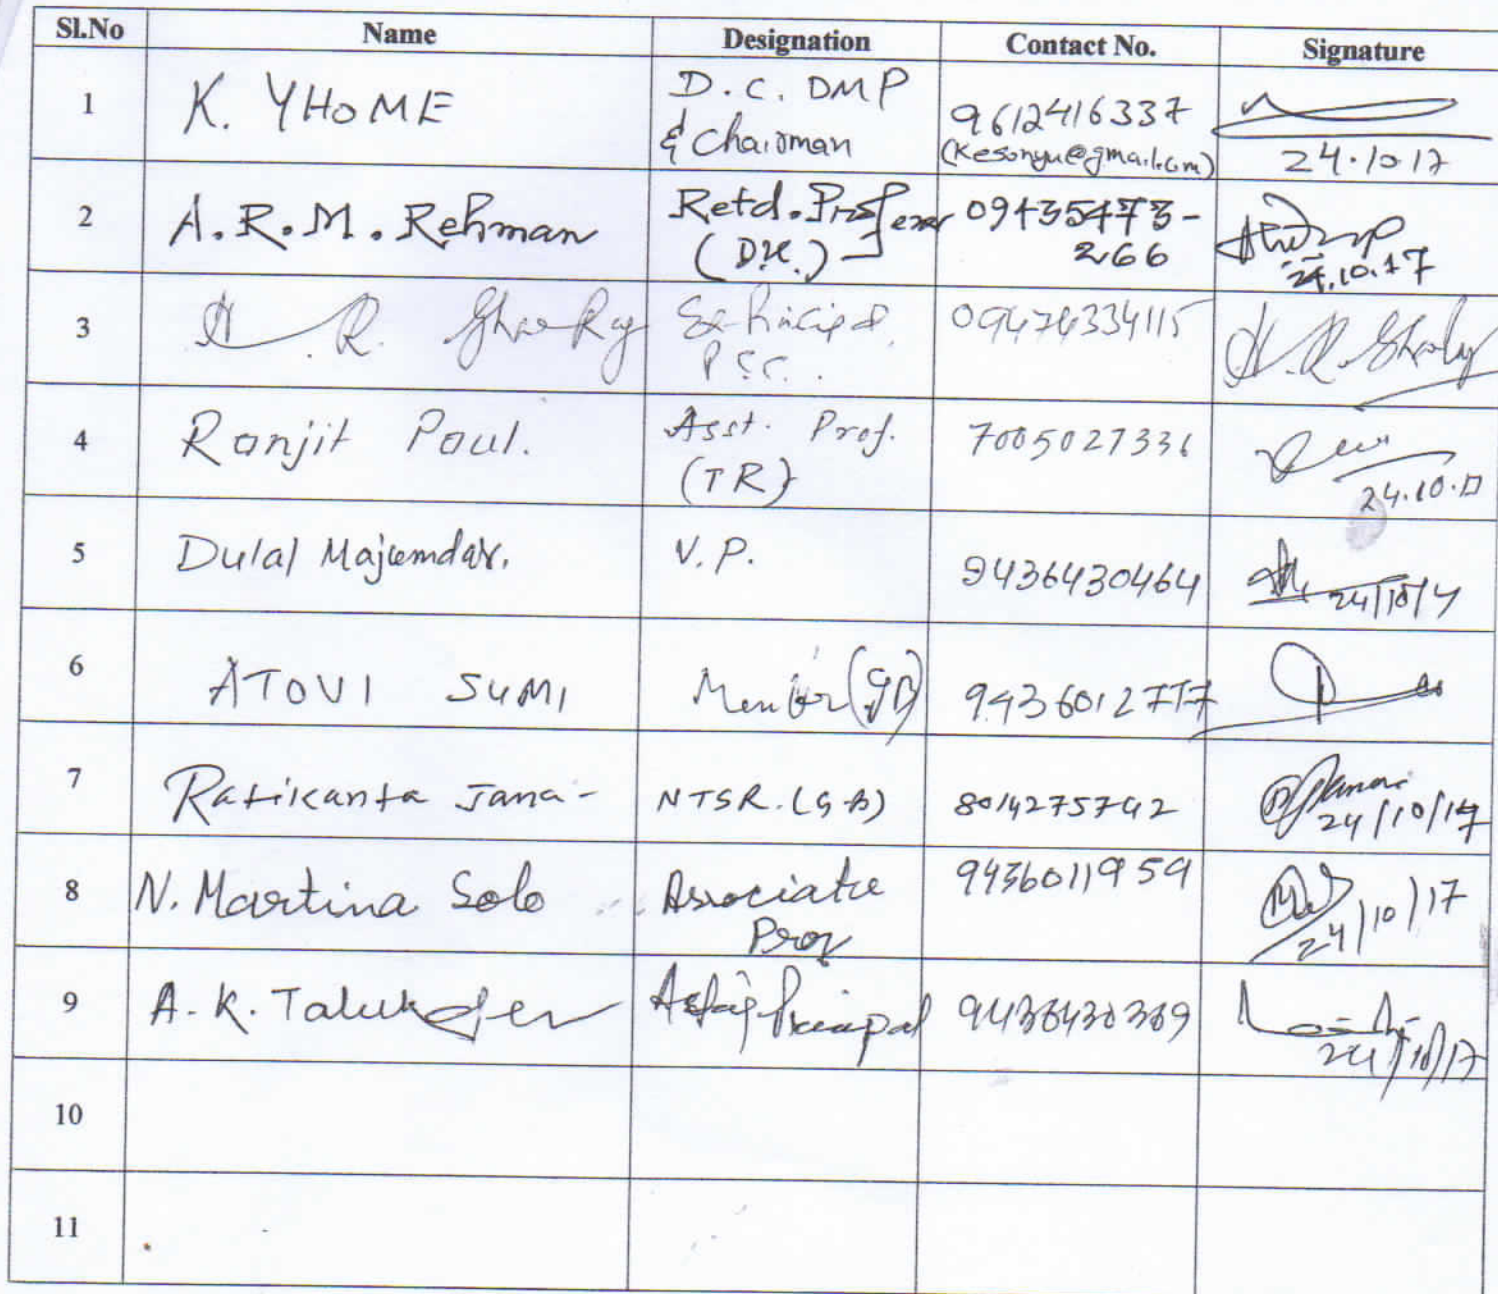 Sl.No Name Designation Contact No. Signature
1 K. YHOME D.C. DMP 9612416337
& Chairman (kesonyu@gmail.com) 24.10.17
2 A.R.M. Rehman Retd. Professor 09435473-
(DU.) 266 24.10.17
3 R. 09474334115
P.S.C.
4 Ranjit Paul. Asst. Prof. 7005027336
(TR) 24.10.17
5 Dulal Majumdar. V.P. 9436430464 24/10/17
6 ATOVI SUMI Member (GB) 9436012777
7 Ratikanta Jana- NTSR. (G.B) 8014275742 24/10/17
8 N. Martina Solo Associate 9436011959
Prof 24/10/17
9 A.K. Talukder Principal 9436430369
24/10/17
10
11